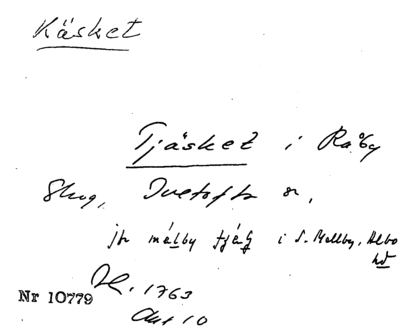 Käsket
Tjäsket i Råby
Skog, Ivetofta sn,
jfr målby tjärr i S. Mellby, Albo
hd
Nr 10779
H. 1763
Akt 10